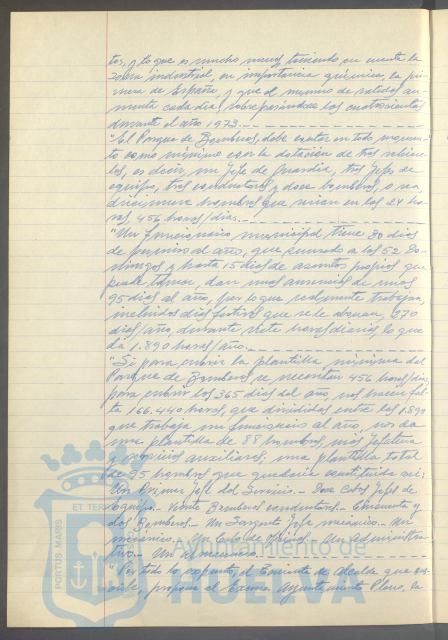 tes, y lo que es mucho menos teniendo en cuenta la
zona industrial, en importancia química, la pri-
mera de España, y que el número de salidas au-
menta cada día sobrepasándose las cuatrocientas
durante el año 1973.
"El Parque de Bomberos, debe contar en todo momen-
to como mínimo con la dotación de tres vehícu-
los, es decir, un Jefe de guardia, tres Jefes de
equipo, tres conductores y doce bomberos, o sea
diecinueve hombres que viven en las 24 ho-
ras, 456 horas/días.
"Un funcionario municipal tiene 30 días
de permiso al año, que sumado a los 52 Do-
mingos y hasta 15 días de asuntos propios que
puede tomar, dan unas ausencias de unos
95 días al año, por lo que realmente trabaja,
incluidos días festivos que se le abonan, 270
días/año durante siete horas diarias lo que
da 1.890 horas/año.
"Si para cubrir la plantilla mínima del
Parque de Bomberos se necesitan 456 horas/día,
para cubrir los 365 días del año, nos hacen fal-
ta 166.440 horas, que divididas entre las 1.890
que trabaja un funcionario al año, nos da
una plantilla de 88 hombres, más Jefatura
y servicios auxiliares, una plantilla total
de 95 hombres que quedaría constituida así:
Un Primer Jefe del Servicio.- Doce Cabos Jefes de
Equipo.- Veinte Bomberos conductores.- Cincuenta y
dos Bomberos.- Un Sargento Jefe mecánico.- Un
mecánico.- Un Cabo de oficios.- Un administra-
tivo.- Un almacenero.
"Por todo lo expuesto, el Teniente de Alcalde que sus-
cribe, propone al Excmo. Ayuntamiento Pleno, la
PORTUS MARIS
ET TERR
Ayuntamiento de
HUELVA